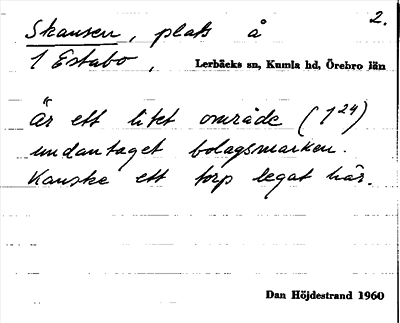 2.
Skansen, plats å
1 Estabo, Lerbäcks sn, Kumla hd, Örebro län
Är ett litet område (1²⁴)
undantaget bolagsmarken.
Kanske ett torp legat här.
Dan Höjdestrand 1960